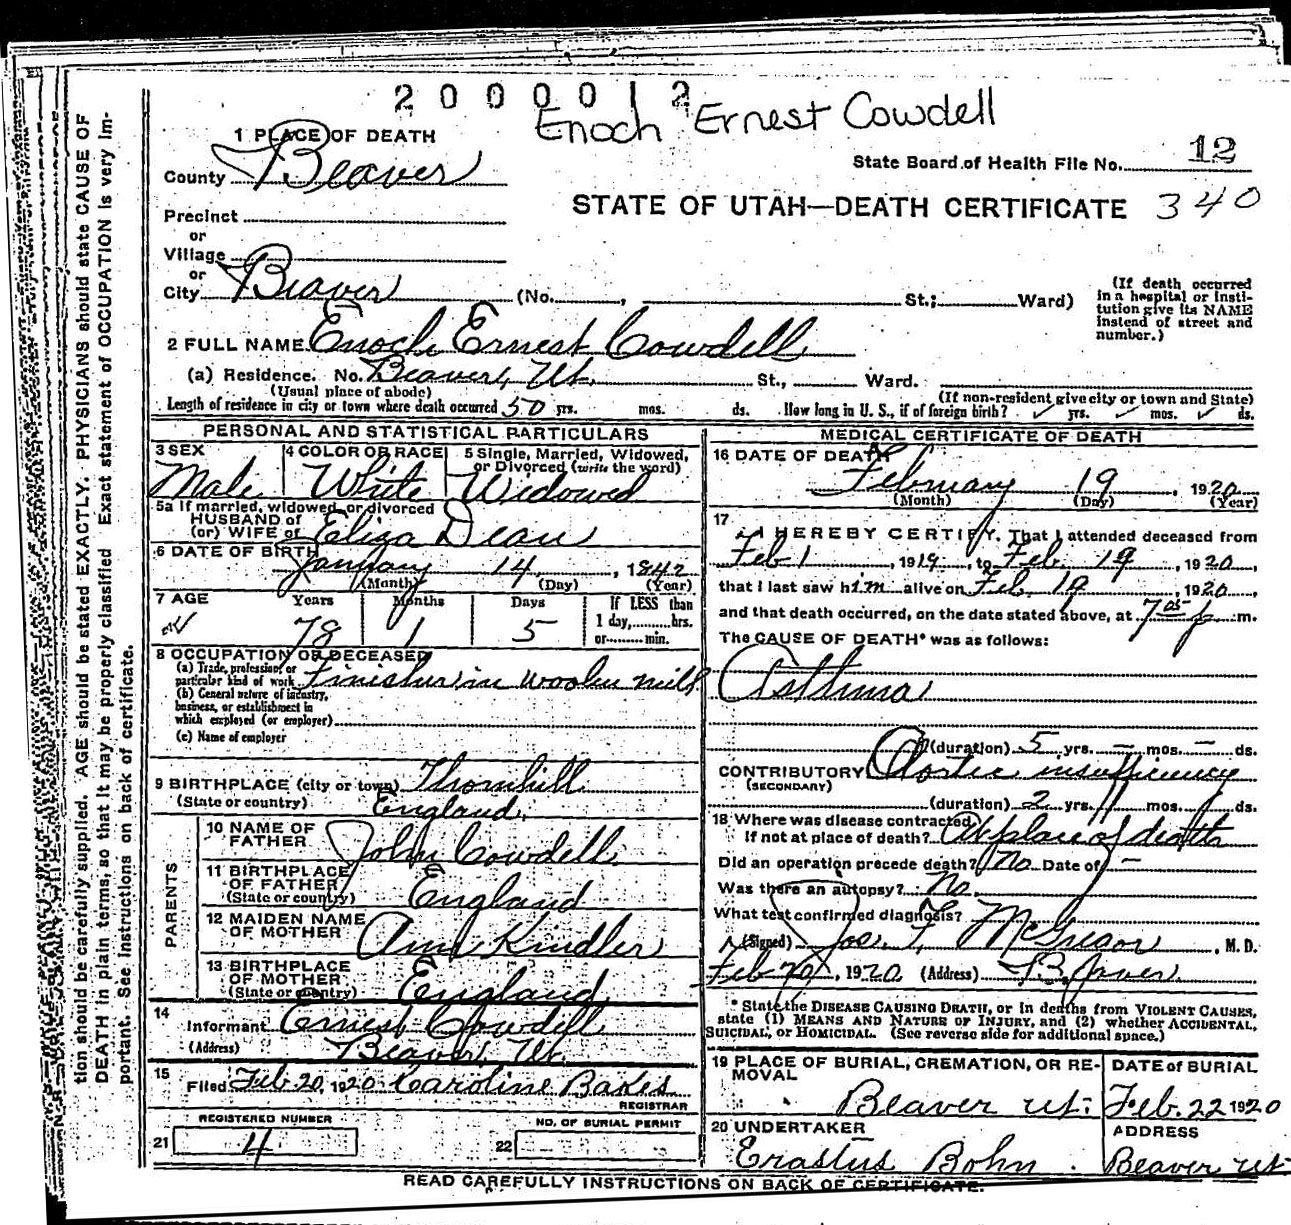 2 0 0 0 0 1 2
Enoch Ernest Cowdell
1 PLACE OF DEATH
County Beaver
State Board of Health File No. 12
STATE OF UTAH—DEATH CERTIFICATE 340
Precinct
or
Village
or
City Beaver (No. , St.; Ward)
(If death occurred
in a hospital or insti-
tution give its NAME
instead of street and
number.)
2 FULL NAME Enoch Ernest Cowdell
(a) Residence. No. Beaver, Ut. St., Ward.
(Usual place of abode)
(If non-resident give city or town and State)
Length of residence in city or town where death occurred 50 yrs. mos. ds. How long in U. S., if of foreign birth? yrs. mos. ds.
PERSONAL AND STATISTICAL PARTICULARS
3 SEX
Male
4 COLOR OR RACE
White
5 Single, Married, Widowed,
or Divorced (write the word)
Widowed
5a If married, widowed, or divorced
HUSBAND of
(or) WIFE of Eliza Dean
6 DATE OF BIRTH
January 14, 1842
(Month) (Day) (Year)
7 AGE Years Months Days If LESS than
1 day, hrs.
or min.
78 1 5
8 OCCUPATION OF DECEASED
(a) Trade, profession, or
particular kind of work Finisher in woolen mill
(b) General nature of industry,
business, or establishment in
which employed (or employer)
(c) Name of employer
9 BIRTHPLACE (city or town) Thornhill
(State or country) England
PARENTS
10 NAME OF
FATHER John Cowdell
11 BIRTHPLACE
OF FATHER
(State or country) England
12 MAIDEN NAME
OF MOTHER Ann Kindler
13 BIRTHPLACE
OF MOTHER
(State or country) England
14
Informant Ernest Cowdell
(Address) Beaver, Ut.
15
Filed Feb. 20, 1920 Caroline Bakes
REGISTRAR
REGISTERED NUMBER
21 4
NO. OF BURIAL PERMIT
22
MEDICAL CERTIFICATE OF DEATH
16 DATE OF DEATH
February 19, 1920
(Month) (Day) (Year)
17
I HEREBY CERTIFY, That I attended deceased from
Feb 1, 1919, to Feb. 19, 1920,
that I last saw him alive on Feb. 19, 1920,
and that death occurred, on the date stated above, at 7 05 p m.
The CAUSE OF DEATH* was as follows:
Asthma
(duration) 5 yrs. — mos. — ds.
CONTRIBUTORY Aortic insufficiency
(SECONDARY)
(duration) 2 yrs. mos. ds.
18 Where was disease contracted
If not at place of death? At place of death
Did an operation precede death? No Date of —
Was there an autopsy? No
What test confirmed diagnosis?
(Signed) Joe. F. McGregor, M. D.
Feb 20, 1920 (Address) Beaver
* State the DISEASE CAUSING DEATH, or in deaths from VIOLENT CAUSES,
state (1) MEANS AND NATURE OF INJURY, and (2) whether ACCIDENTAL,
SUICIDAL, or HOMICIDAL. (See reverse side for additional space.)
19 PLACE OF BURIAL, CREMATION, OR RE-
MOVAL
Beaver Ut.
DATE of BURIAL
Feb. 22 1920
20 UNDERTAKER
Erastus Bohn
ADDRESS
Beaver Ut
READ CAREFULLY INSTRUCTIONS ON BACK OF CERTIFICATE.
tion should be carefully supplied. AGE should be stated EXACTLY. PHYSICIANS should state CAUSE OF
DEATH in plain terms, so that it may be properly classified. Exact statement of OCCUPATION is very im-
portant. See instructions on back of certificate.